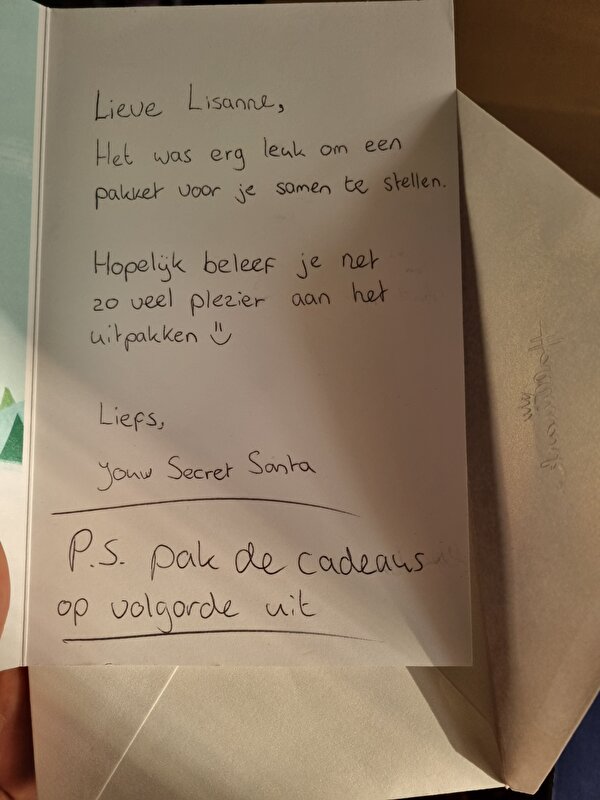 Lieve Lisanne,
Het was erg leuk om een
pakket voor je samen te stellen.
Hopelijk beleef je net
zo veel plezier aan het
uitpakken
Liefs,
Jouw Secret Santa
P.S. pak de cadeaus
op volgorde uit